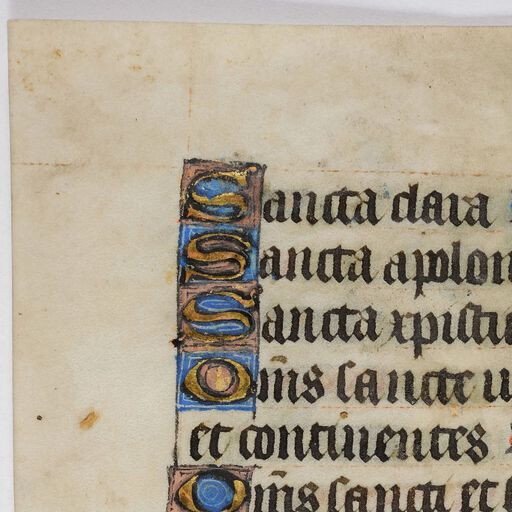 Sancta clara
Sancta apolon
Sancta xpisti
Om̅s sancte u
et continentes
Om̅s sancti et